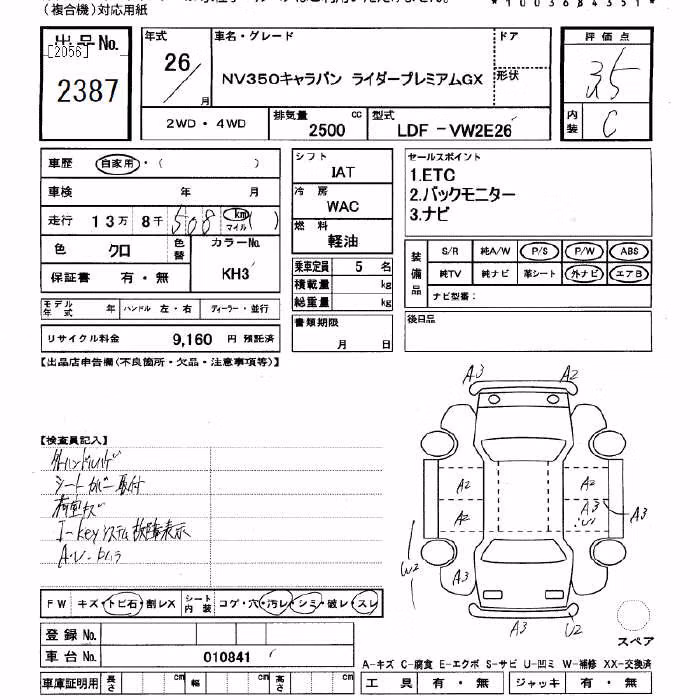 (複合機)対応用紙
*1003684351*
出品No.
[2056]
2387
年式
26
月
車名・グレード
NV350キャラバン ライダープレミアムGX
ドア
形状
2WD・4WD
排気量
2500
cc
型式
LDF-VW2E26
評価点
3.5
内装
C
車歴
自家用・( )
車検
年 月
走行
13万 8千 508
km
マイル
( )
色
クロ
色替
カラーNo.
KH3
保証書
有・無
シフト
IAT
冷房
WAC
燃料
軽油
セールスポイント
1.ETC
2.バックモニター
3.ナビ
装備品
S/R 純A/W P/S P/W ABS
純TV 純ナビ 革シート 外ナビ エアB
ナビ型番:
乗車定員 5 名
積載量 kg
総重量 kg
モデル年式 年
ハンドル 左・右
ディーラー・並行
リサイクル料金 9,160 円 預託済
書類期限
月 日
後日品
【出品店申告欄(不良箇所・欠品・注意事項等)】
【検査員記入】
シートカバー取付
荷室キズ
I-keyシステム故障表示
A3 A2
A2 A2
A2 A3 U1 A3
W2
A3
A3 U2
スペア
FW キズ・トビ石・割レX
シート内装 コゲ・穴・汚レ・シミ・破レ・スレ
登録No.
車台No. 010841
車庫証明用 長さ cm 幅 cm 高さ cm
A-キズ C-腐食 E-エクボ S-サビ U-凹ミ W-補修 XX-交換済
工具 有・無 ジャッキ 有・無